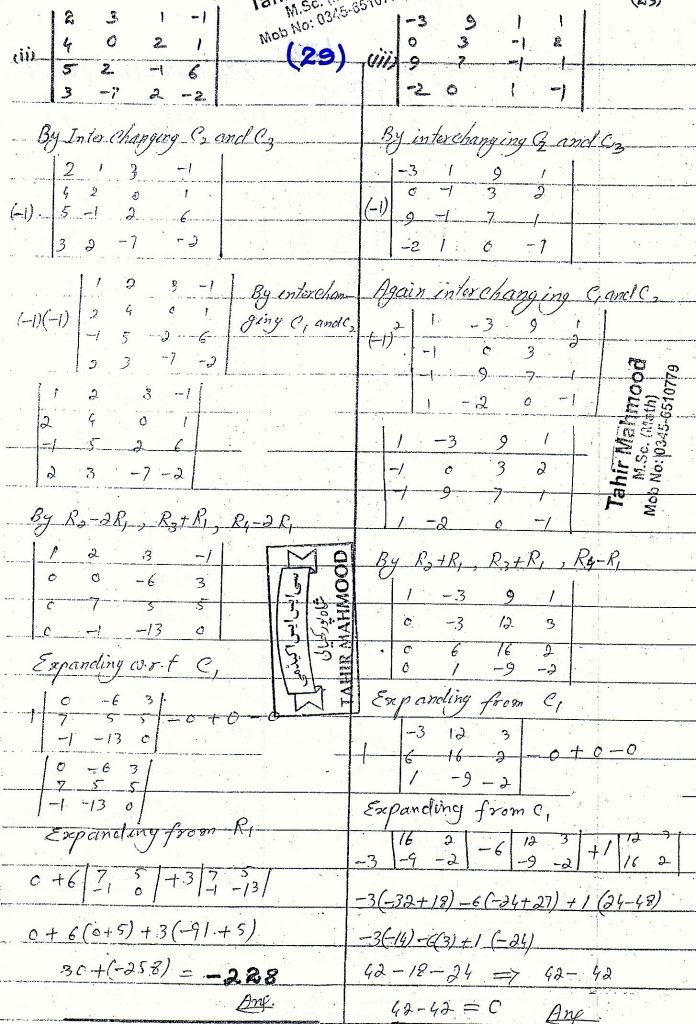 M.Sc.
Mob No: 0345-6510
(29)
(ii)
2 3 1 -1
4 0 2 1
5 2 -1 6
3 -7 2 -2
By Inter Changing C₂ and C₃
(-1)
2 1 3 -1
4 2 0 1
5 -1 2 6
3 2 -7 -2
(-1)(-1)
1 2 3 -1
2 4 0 1
-1 5 2 6
2 3 -7 -2
By interchan-
ging C₁ and C₂
1 2 3 -1
2 4 0 1
-1 5 2 6
2 3 -7 -2
By R₂-2R₁, R₃+R₁, R₄-2R₁
1 2 3 -1
0 0 -6 3
0 7 5 5
0 -1 -13 0
Expanding w.r.t C₁
1
0 -6 3
7 5 5
-1 -13 0
-0+0-0
0 -6 3
7 5 5
-1 -13 0
Expanding from R₁
0 +6 |7 5| +3 |7 5|
|-1 0| |-1 -13|
0 + 6(0+5) + 3(-91+5)
30+(-258) = -228
Ans.
(iii)
-3 9 1 1
0 3 -1 2
9 7 -1 1
-2 0 1 -1
By interchanging C₂ and C₃
(-1)
-3 1 9 1
0 -1 3 2
9 -1 7 1
-2 1 0 -1
Again interchanging C₁ and C₂
(-1)²
1 -3 9 1
-1 0 3 2
-1 9 7 1
1 -2 0 -1
1 -3 9 1
-1 0 3 2
-1 9 7 1
1 -2 0 -1
By R₂+R₁, R₃+R₁, R₄-R₁
1 -3 9 1
0 -3 12 3
0 6 16 2
0 1 -9 -2
Expanding from C₁
1
-3 12 3
6 16 2
1 -9 -2
-0+0-0
Expanding from C₁
-3 |16 2| -6 |12 3| +1 |12 3|
|-9 -2| |-9 -2| |16 2|
-3(-32+18) -6(-24+27) +1(24-48)
-3(-14)-6(3)+1(-24)
42-18-24 ⇒ 42-42
42-42 = 0
Ans
Tahir Mahmood
M.Sc. (Math)
Mob No: 0345-6510779
TAHIR MAHMOOD